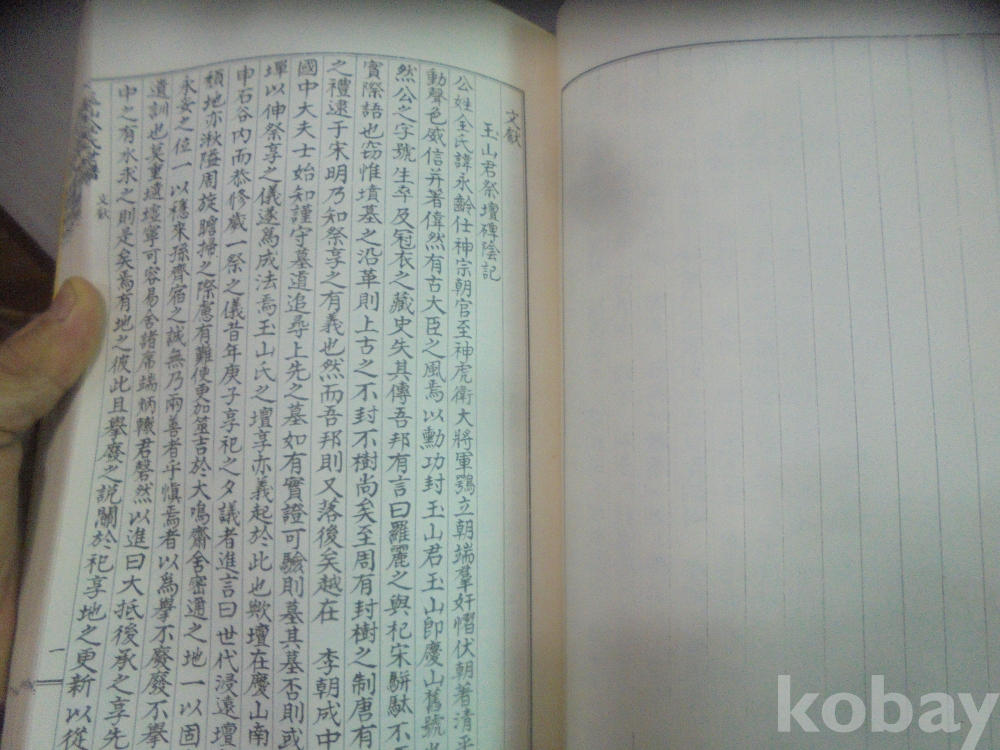 文獻
玉山君祭壇碑陰記
公姓全氏諱永齡仕神宗朝官至神虎衛大將軍鶚立朝端羣奸慴伏朝著清平
動聲色威信幷著偉然有古大臣之風焉以勳功封玉山君玉山卽慶山舊號也
然公之字號生卒及冠衣之藏史失其傳吾邦有言曰羅麗之與杞宋騈馱不
實際語也窃惟墳墓之沿革則上古之不封不樹尚矣至周有封樹之制唐有
之禮逮于宋明乃知祭享之有義也然而吾邦則又落後矣越在 李朝成中
國中大夫士始知謹守墓道追尋上先之墓如有實證可驗則墓其墓否則或
墠以伸祭享之儀遂爲成法焉玉山氏之壇享亦義起於此也歟壇在慶山南
申石谷內而恭修歲一祭之儀昔年庚子享祀之夕議者進言曰世代浸遠壇
頹地亦湫隘周旋瞻掃之際慮有難便更加筮吉於大鳴齋舍密邇之地一以固
永妥之位一以穩來孫齊宿之誠無乃兩善者乎愼焉者以爲擧不廢廢不擧
遺訓也莫重遺壇寧可容易舍諸席端炳轍君磬然以進曰大抵後承之享先
中之有水求之則是矣焉有地之彼此且擧廢之說關於祀享地之更新以從
文獻
一
kobay